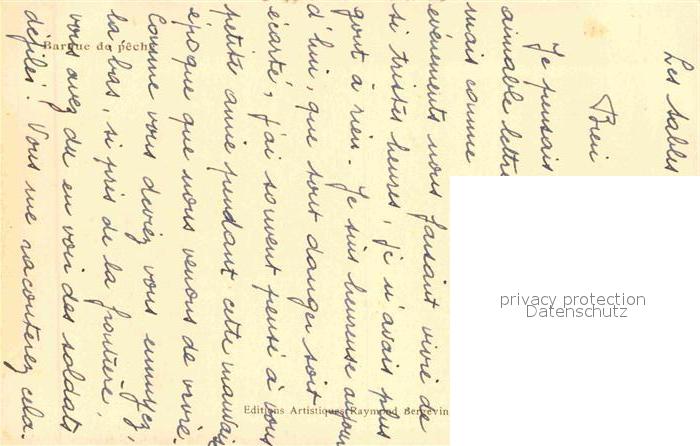 Les Sables
Bien
Je pensais
aimable lettre
mais comme
événements nous faisant vivre de
si tristes heures, je n'avais plus
gout à rien. Je suis heureuse aujour
d'hui, que tout danger soit
écarté, j'ai souvent pensé à vous
petite amie pendant cette mauvaise
époque que nous venons de vivre.
Comme vous deviez vous ennuyez,
la bas, si près de la frontière,
vous avez du en voir des soldats
défiler. Vous me raconterez cela.
Barque de pêche
Editions Artistiques Raymond Bergevin
privacy protection
Datenschutz